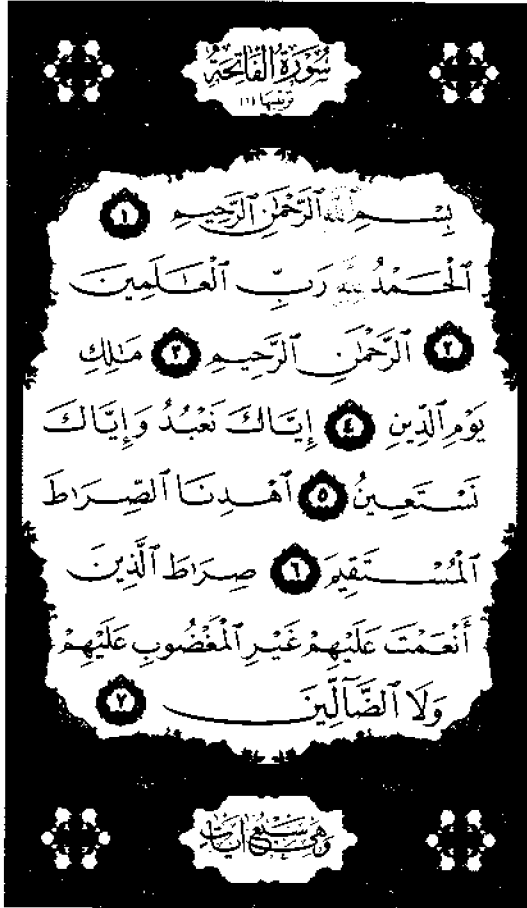 سُورَةُ الفَاتِحَةِ
ترتيبها ١
بِسْـــمِ ٱللَّهِ ٱلرَّحْمَٰنِ ٱلرَّحِيمِ ١
ٱلْحَـمْدُ لِلَّهِ رَبِّ ٱلْعَـٰلَمِينَ
٢ ٱلرَّحْمَٰنِ ٱلرَّحِيمِ ٣ مَـٰلِكِ
يَوْمِ ٱلدِّينِ ٤ إِيَّاكَ نَعْبُدُ وَإِيَّاكَ
نَسْتَعِينُ ٥ ٱهْدِنَا ٱلصِّرَٰطَ
ٱلْمُسْتَقِيمَ ٦ صِرَٰطَ ٱلَّذِينَ
أَنْعَمْتَ عَلَيْهِمْ غَيْرِ ٱلْمَغْضُوبِ عَلَيْهِمْ
وَلَا ٱلضَّآلِّينَ ٧
وَهِيَ سَبْعُ آيَاتٍ